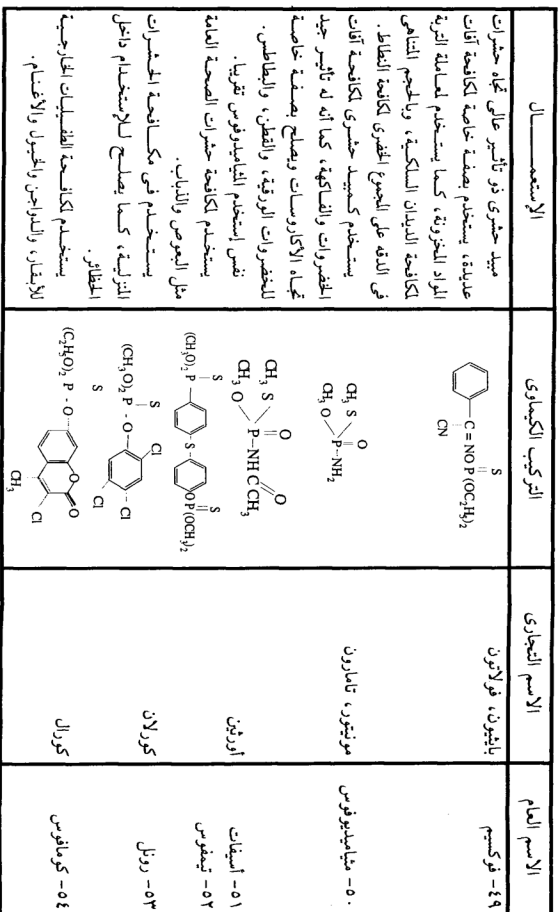 الاسم العام
الاسم التجارى
التركيب الكيماوى
الإستعمـــــال
٤٩- فوكسيم
بايثيون، فولاتون
C = NO P (OC₂H₅)₂
S
CN
مبيد حشرى ذو تأثير عالى تجاه حشرات
عديدة، يستخدم بصفة خاصة لمكافحة آفات
المواد المخزونة، كما يستخدم لمعاملة التربة
لمكافحة الديدان السلكية، وبالحجم المتناهى
فى الدقه على المجموع الخضرى لمكافحة النطاط.
٥٠- مثياميديوفوس
مونيتور، تامارون
CH₃ S
CH₃ O
O
P-NH₂
يستخدم كمبيد حشرى لمكافحة آفات
الخضروات والفاكهة، كما أنه له تأثير جيد
تجاه الأكاروسات ويصلح بصفة خاصة
للخضروات الورقية، والقطن، والبطاطس.
٥١- أسيفات
أورثين
CH₃ S
CH₃ O
O
O
P-NH C CH₃
نفس إستخدم الثياميدوفوس تقريبا.
٥٢- تيمفوس
(CH₃O)₂ P
S
S
S
OP(OCH₃)₂
يستخدم لمكافحة حشرات الصحة العامة
مثل البعوض والذباب.
٥٣- رونل
كورلان
(CH₃O)₂ P - O
S
Cl
Cl
Cl
يستخدم فى مكافحة الحشرات
المنزلية، كما يصلح للإستخدام داخل
الحظائر.
٥٤- كومافوس
كورال
(C₂H₅O)₂ P - O
S
O
O
Cl
CH₃
يستخدم لمكافحة الطفيليات الخارجية
للأبقار، والدواجن والخيول والأغنام.